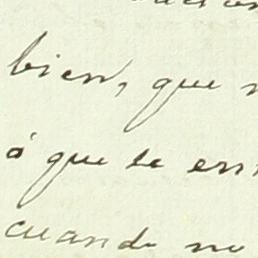 bien, que
ó que se
cuando no